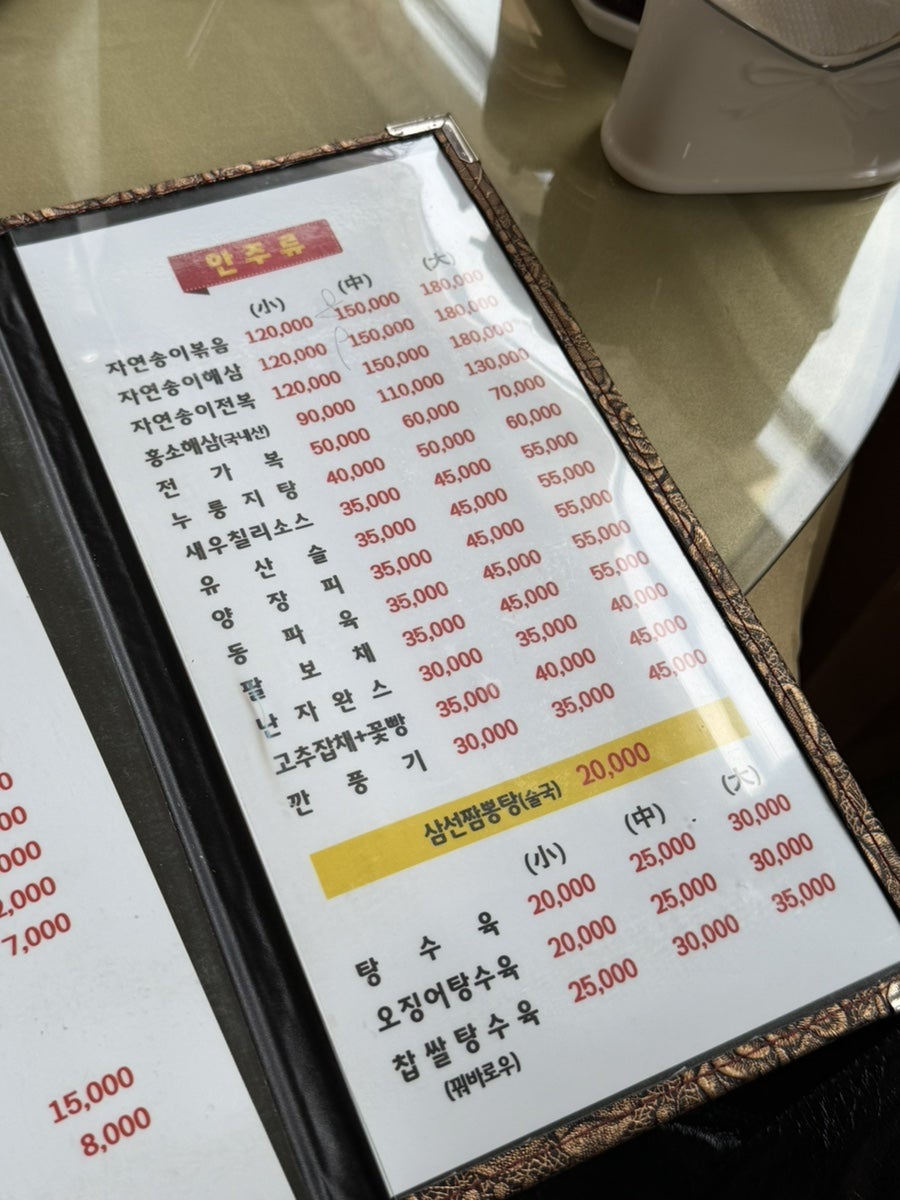 7,000
15,000
8,000
안주류
(小) (中) (大)
자연송이볶음 120,000 150,000 180,000
자연송이해삼 120,000 150,000 180,000
자연송이전복 120,000 150,000 180,000
홍소해삼(국내산) 90,000 110,000 130,000
전가복 50,000 60,000 70,000
누룽지탕 40,000 50,000 60,000
새우칠리소스 35,000 45,000 55,000
유산슬 35,000 45,000 55,000
양장피 35,000 45,000 55,000
동파육 35,000 45,000 55,000
팔보채 35,000 45,000 55,000
난자완스 30,000 35,000 40,000
고추잡채+꽃빵 35,000 40,000 45,000
깐풍기 30,000 35,000 45,000
삼선짬뽕탕(술국) 20,000
(小) (中) (大)
탕수육 20,000 25,000 30,000
오징어탕수육 20,000 25,000 30,000
찹쌀탕수육 25,000 30,000 35,000
(꿔바로우)